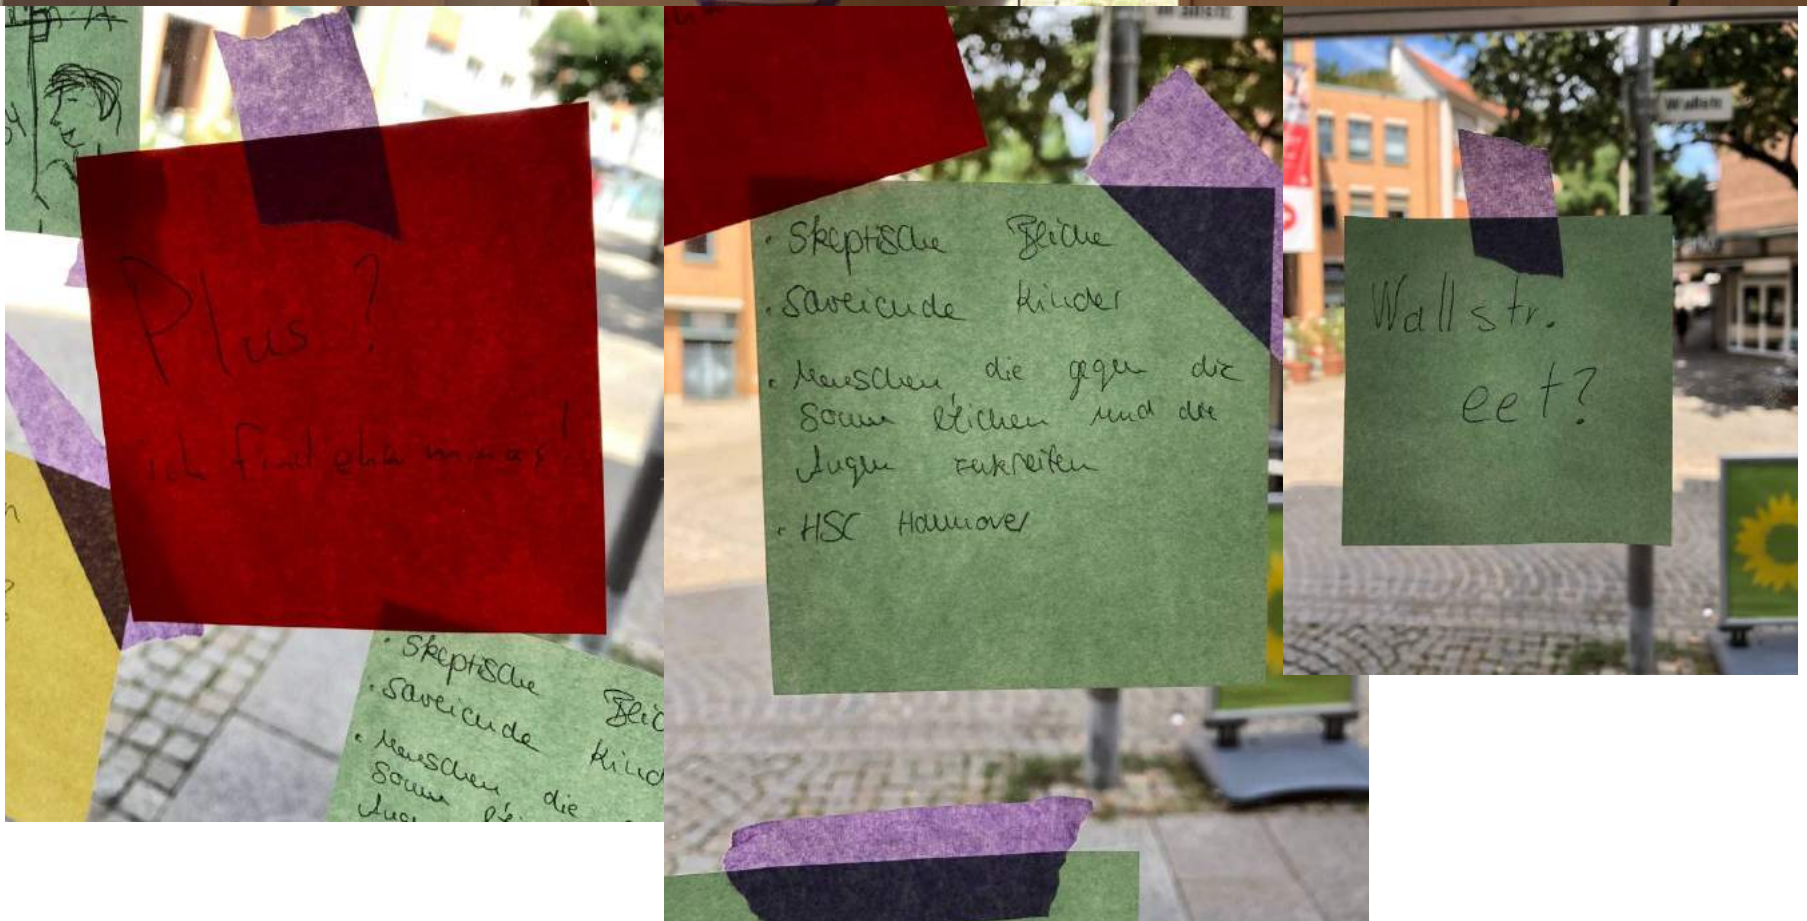 Plus?
ich find eher minus!
· Skeptische Blic
· Schreiende Kind
· Menschen, die
Sonne bli
Auge
· Skeptische Blicke
· Schreiende Kinder
· Menschen, die gegen die
Sonne blicken und die
Augen zukneifen
· HSC Hannover
Wallstr
Wallstr.
eet?